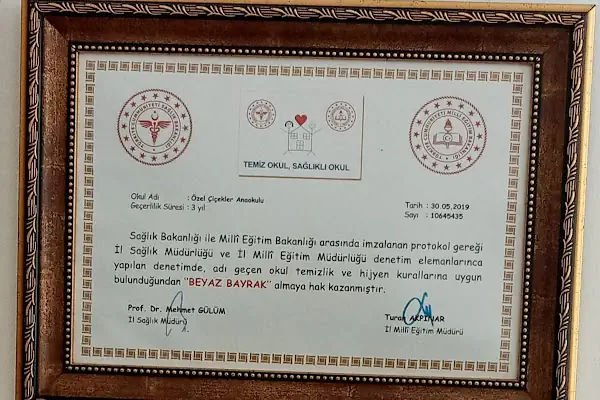 TÜRKİYE CUMHURİYETİ SAĞLIK BAKANLIĞI
TEMİZ OKUL, SAĞLIKLI OKUL
TÜRKİYE CUMHURİYETİ MİLLÎ EĞİTİM BAKANLIĞI
Okul Adı : Özel Çiçekler Anaokulu
Geçerlilik Süresi : 3 yıl
Tarih : 30.05.2019
Sayı : 10645435
Sağlık Bakanlığı ile Millî Eğitim Bakanlığı arasında imzalanan protokol gereği
İl Sağlık Müdürlüğü ve İl Millî Eğitim Müdürlüğü denetim elemanlarınca
yapılan denetimde, adı geçen okul temizlik ve hijyen kurallarına uygun
bulunduğundan "BEYAZ BAYRAK" almaya hak kazanmıştır.
Prof. Dr. Mehmet GÜLÜM
İl Sağlık Müdürü
Turan AKPINAR
İl Millî Eğitim Müdürü